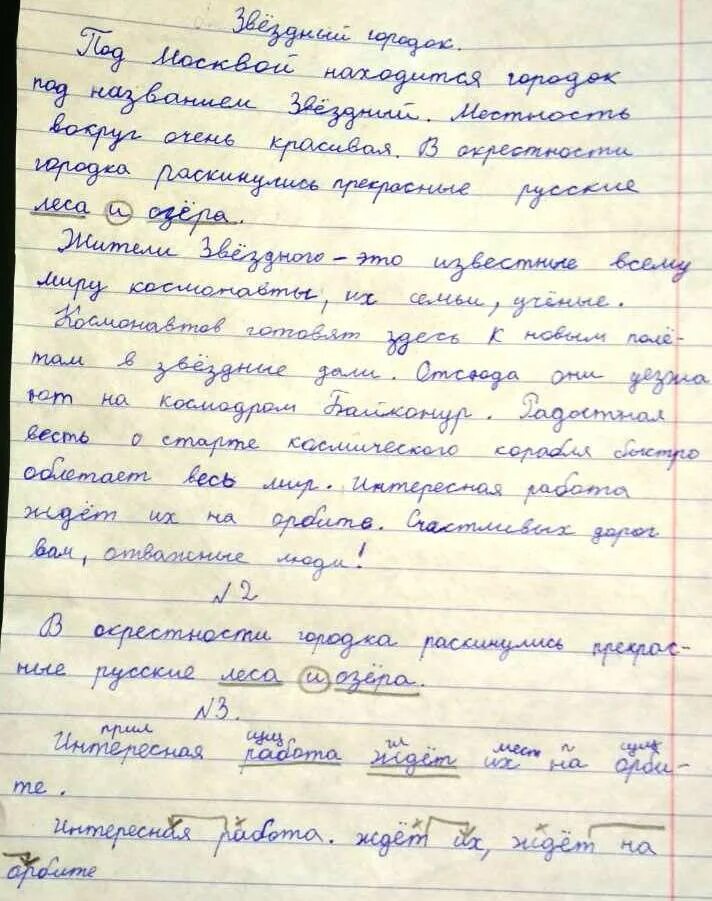 Звёздный городок.
Под Москвой находится городок
под названием Звёздный. Местность
вокруг очень красивая. В окрестности
городка раскинулись прекрасные русские
леса и озёра.
Жители Звёздного – это известные всему
миру космонавты, их семьи, учёные.
Космонавтов готовят здесь к новым полё-
там в звёздные дали. Отсюда они уезжа
ют на космодром Байконур. Радостная
весть о старте космического корабля быстро
облетает весь мир. Интересная работа
ждёт их на орбите. Счастливых дорог
вам, отважные люди!
№2
В окрестности городка раскинулись прекрас-
ные русские леса и озёра.
№3.
прил сущ гл мест п сущ
Интересная работа ждёт их на орби-
те.
Интересная работа. ждёт их, ждёт на
орбите